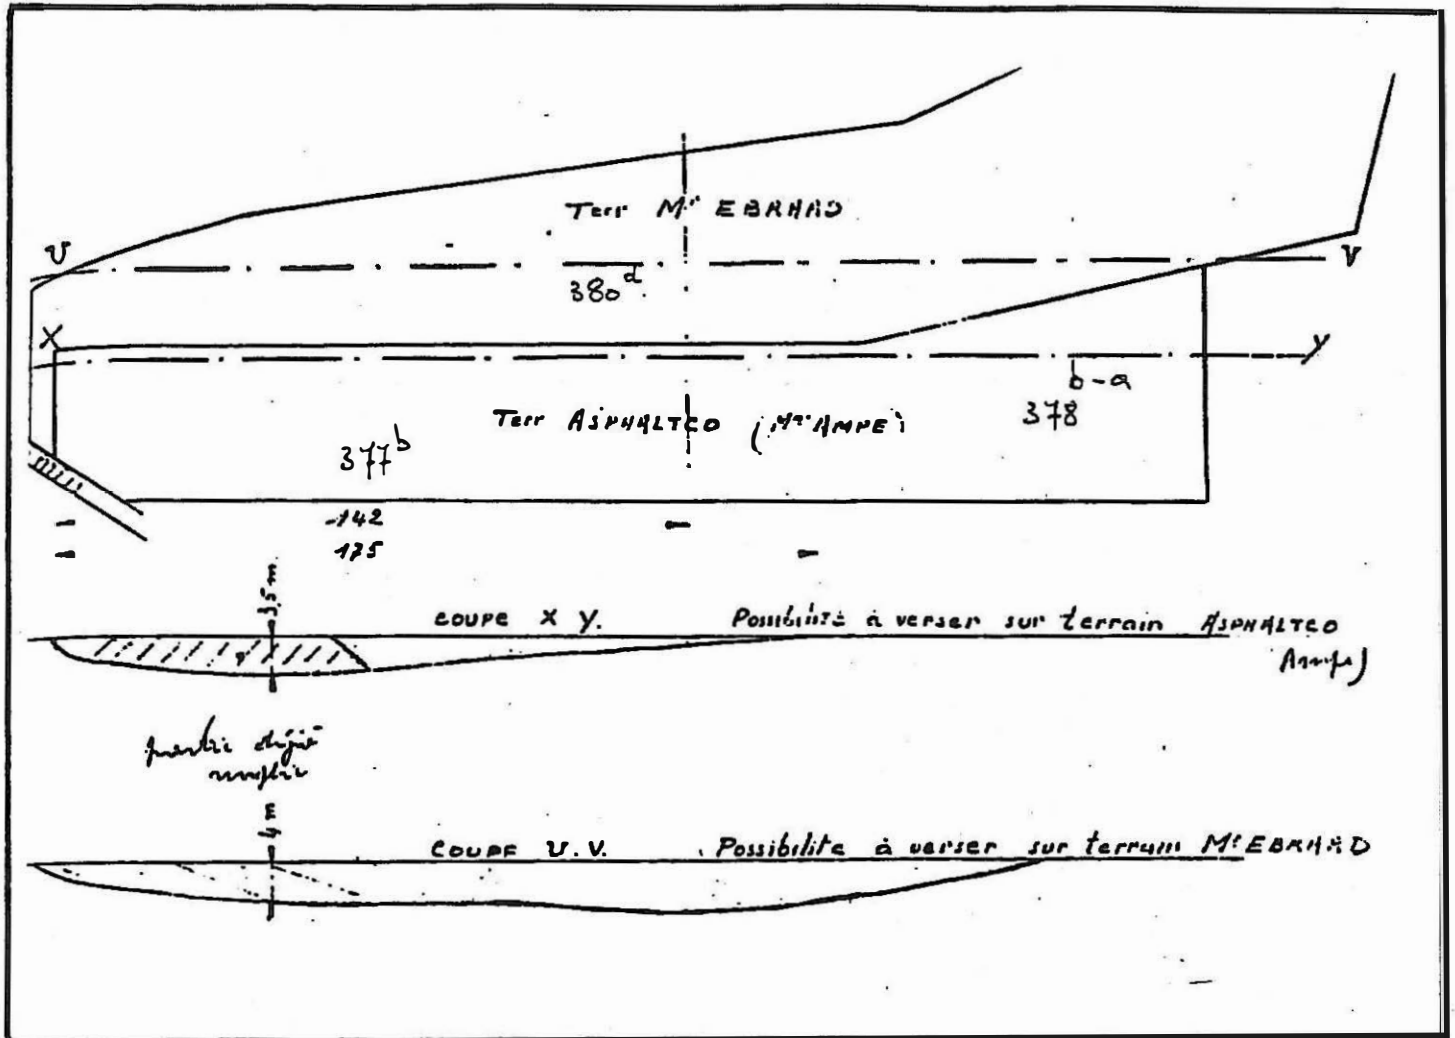 Terr Mr EBRHARD
U
V
380 d
X
Y
b-a
378
Terr ASPHALTCO (Mr AMPE)
377 b
142
175
3,5 m
COUPE X Y. Possibilité à verser sur terrain ASPHALTCO
Ampe)
partie déjà
remplie
4 m
COUPE U.V. Possibilité à verser sur terrain Mr EBRHARD